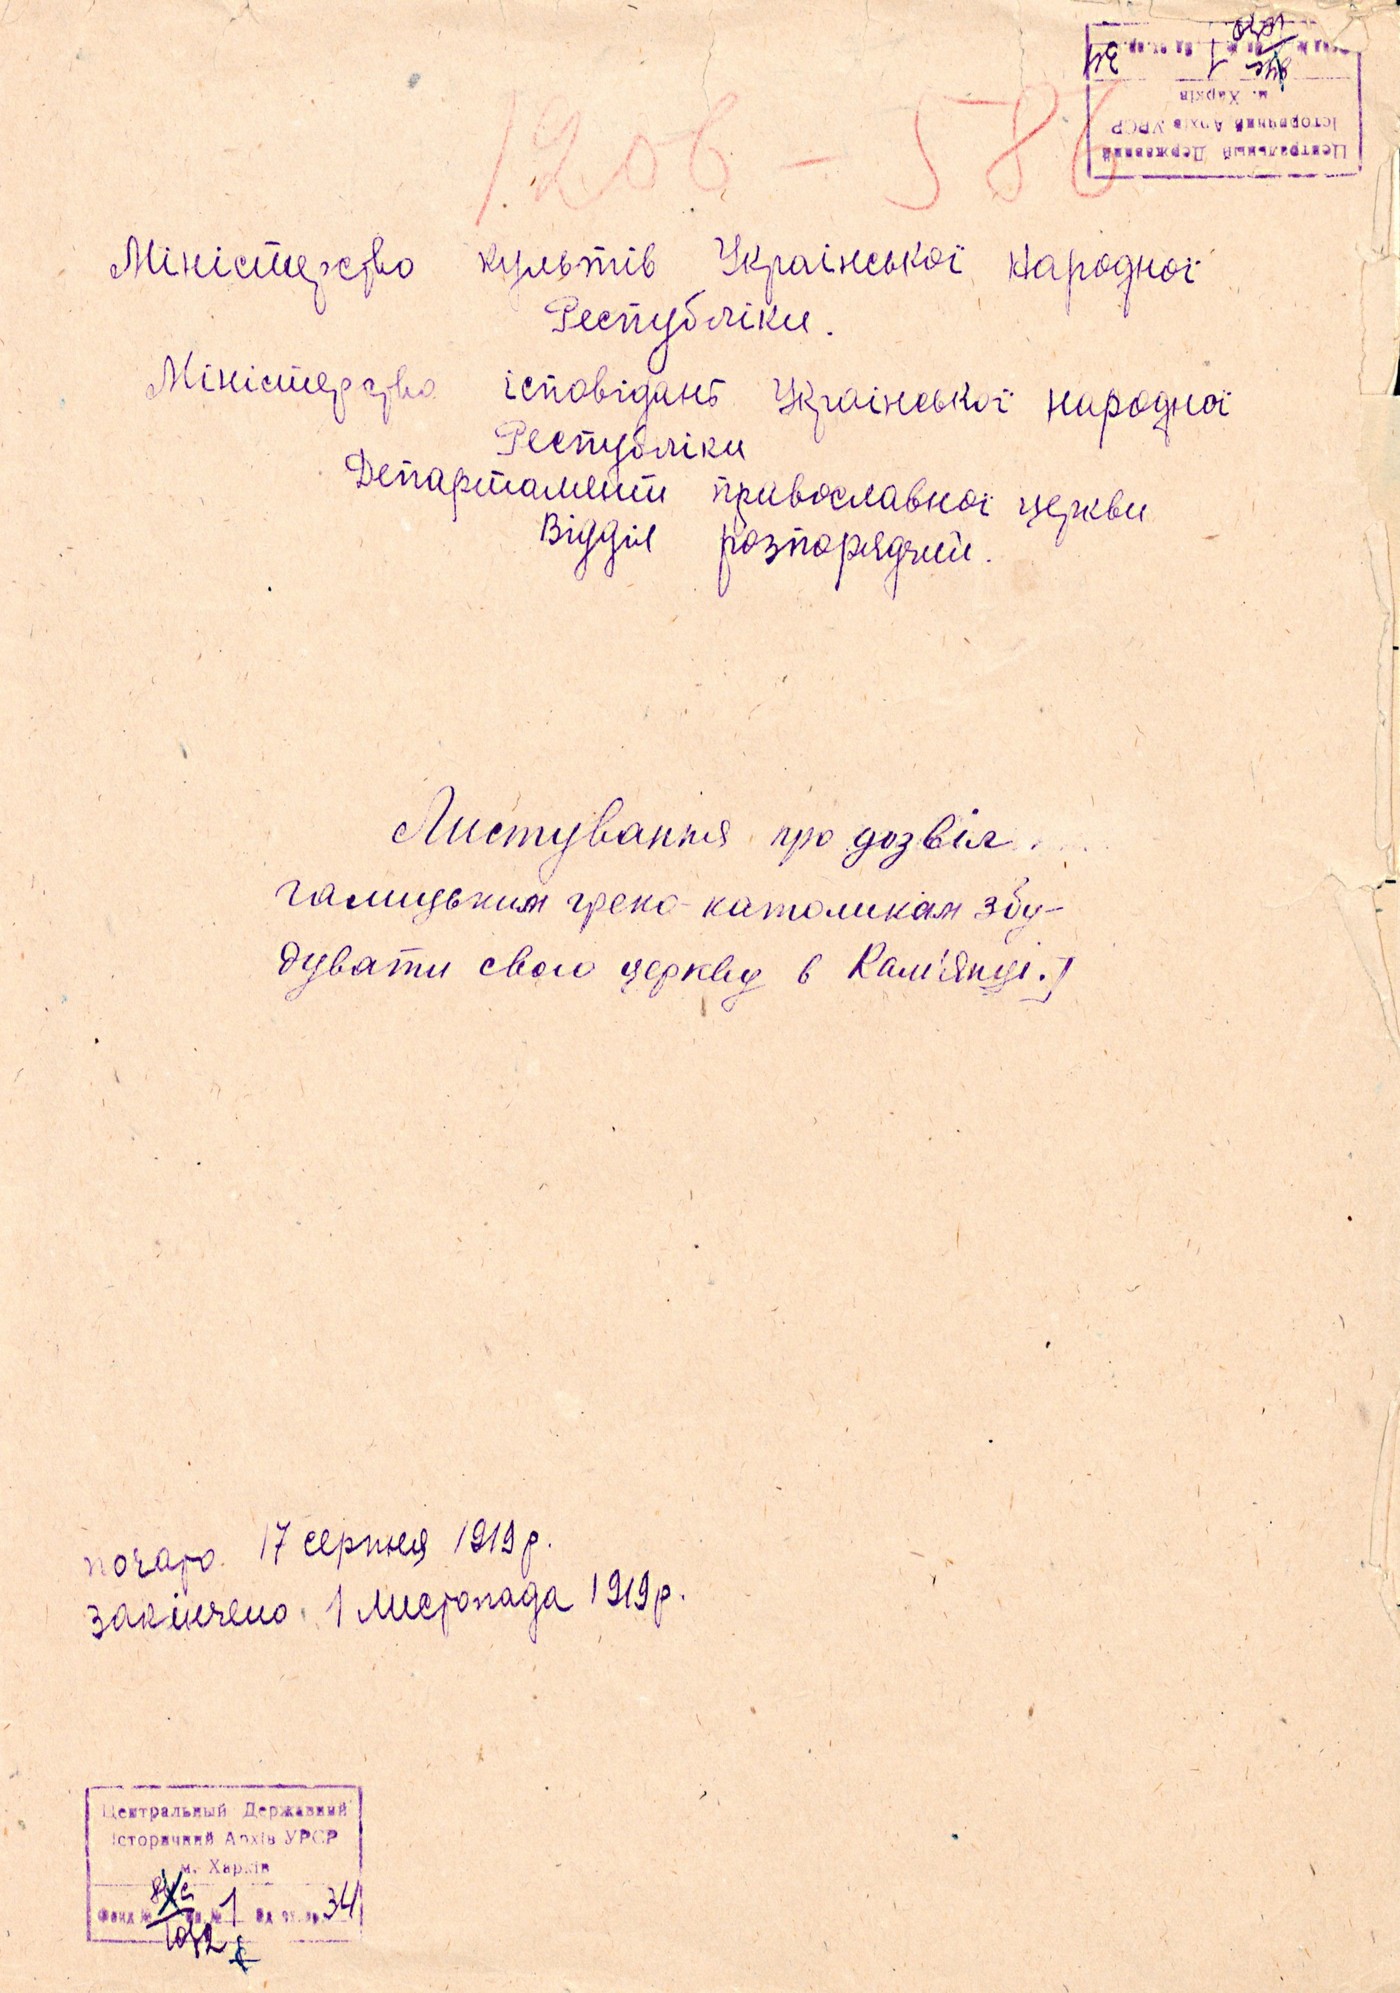 1206 - 586
Міністерство культів Української Народної
Республіки.
Міністерство ісповідань Української народної
Республіки
Департамент православної церкви
Відділ розпорядчий.
Листування про дозвіл
галицьким греко-католикам збу-
дувати свою церкву в Кам'янці.
почато 17 серпня 1919 р.
закінчено 1 листопада 1919 р.
Центральный Державний
Історичний Архів УРСР
м. Харків
Фонд № 1 34
Центральный Державний
Історичний Архів УРСР
м. Харків
Фонд № оп. № 1 Од. зб. 34